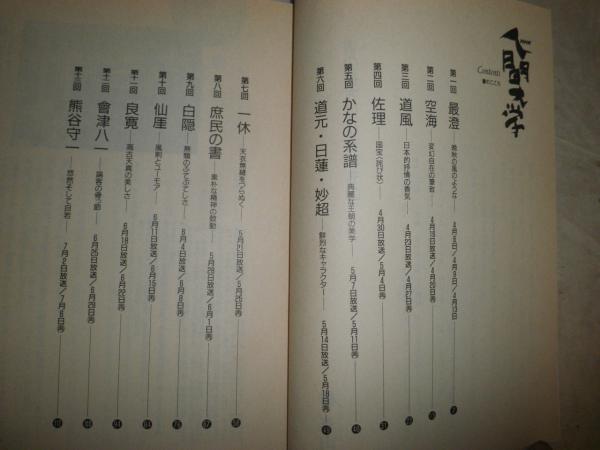 NHK
人間大学
Contents
■書のこころ
第一回 最澄 晩秋の風のような 4月6日/4月9日/4月13日 7
第二回 空海 変幻自在の筆致 4月16日放送/4月20日再
第三回 道風 日本的抒情の香気 4月23日放送/4月27日再 22
第四回 佐理 国宝〈詫び状〉 4月30日放送/5月4日再 31
第五回 かなの系譜 典麗な王朝の美学 5月7日放送/5月11日再 40
第六回 道元・日蓮・妙超 鮮烈なキャラクター 5月14日放送/5月18日再 49
第七回 一休 天衣無縫をつらぬく 5月21日放送/5月25日再 58
第八回 庶民の書 素朴な精神の鼓動 5月28日放送/6月1日再 67
第九回 白隠 無類のふてぶてしさ 6月4日放送/6月8日再 76
第十回 仙厓 風刺とユーモア 6月11日放送/6月15日再 84
第十一回 良寛 高古天真の美しさ 6月18日放送/6月22日再 94
第十二回 會津八一 論客の骨っ節 6月25日放送/6月29日再
第十三回 熊谷守一 悠然そして自若 7月2日放送/7月6日再